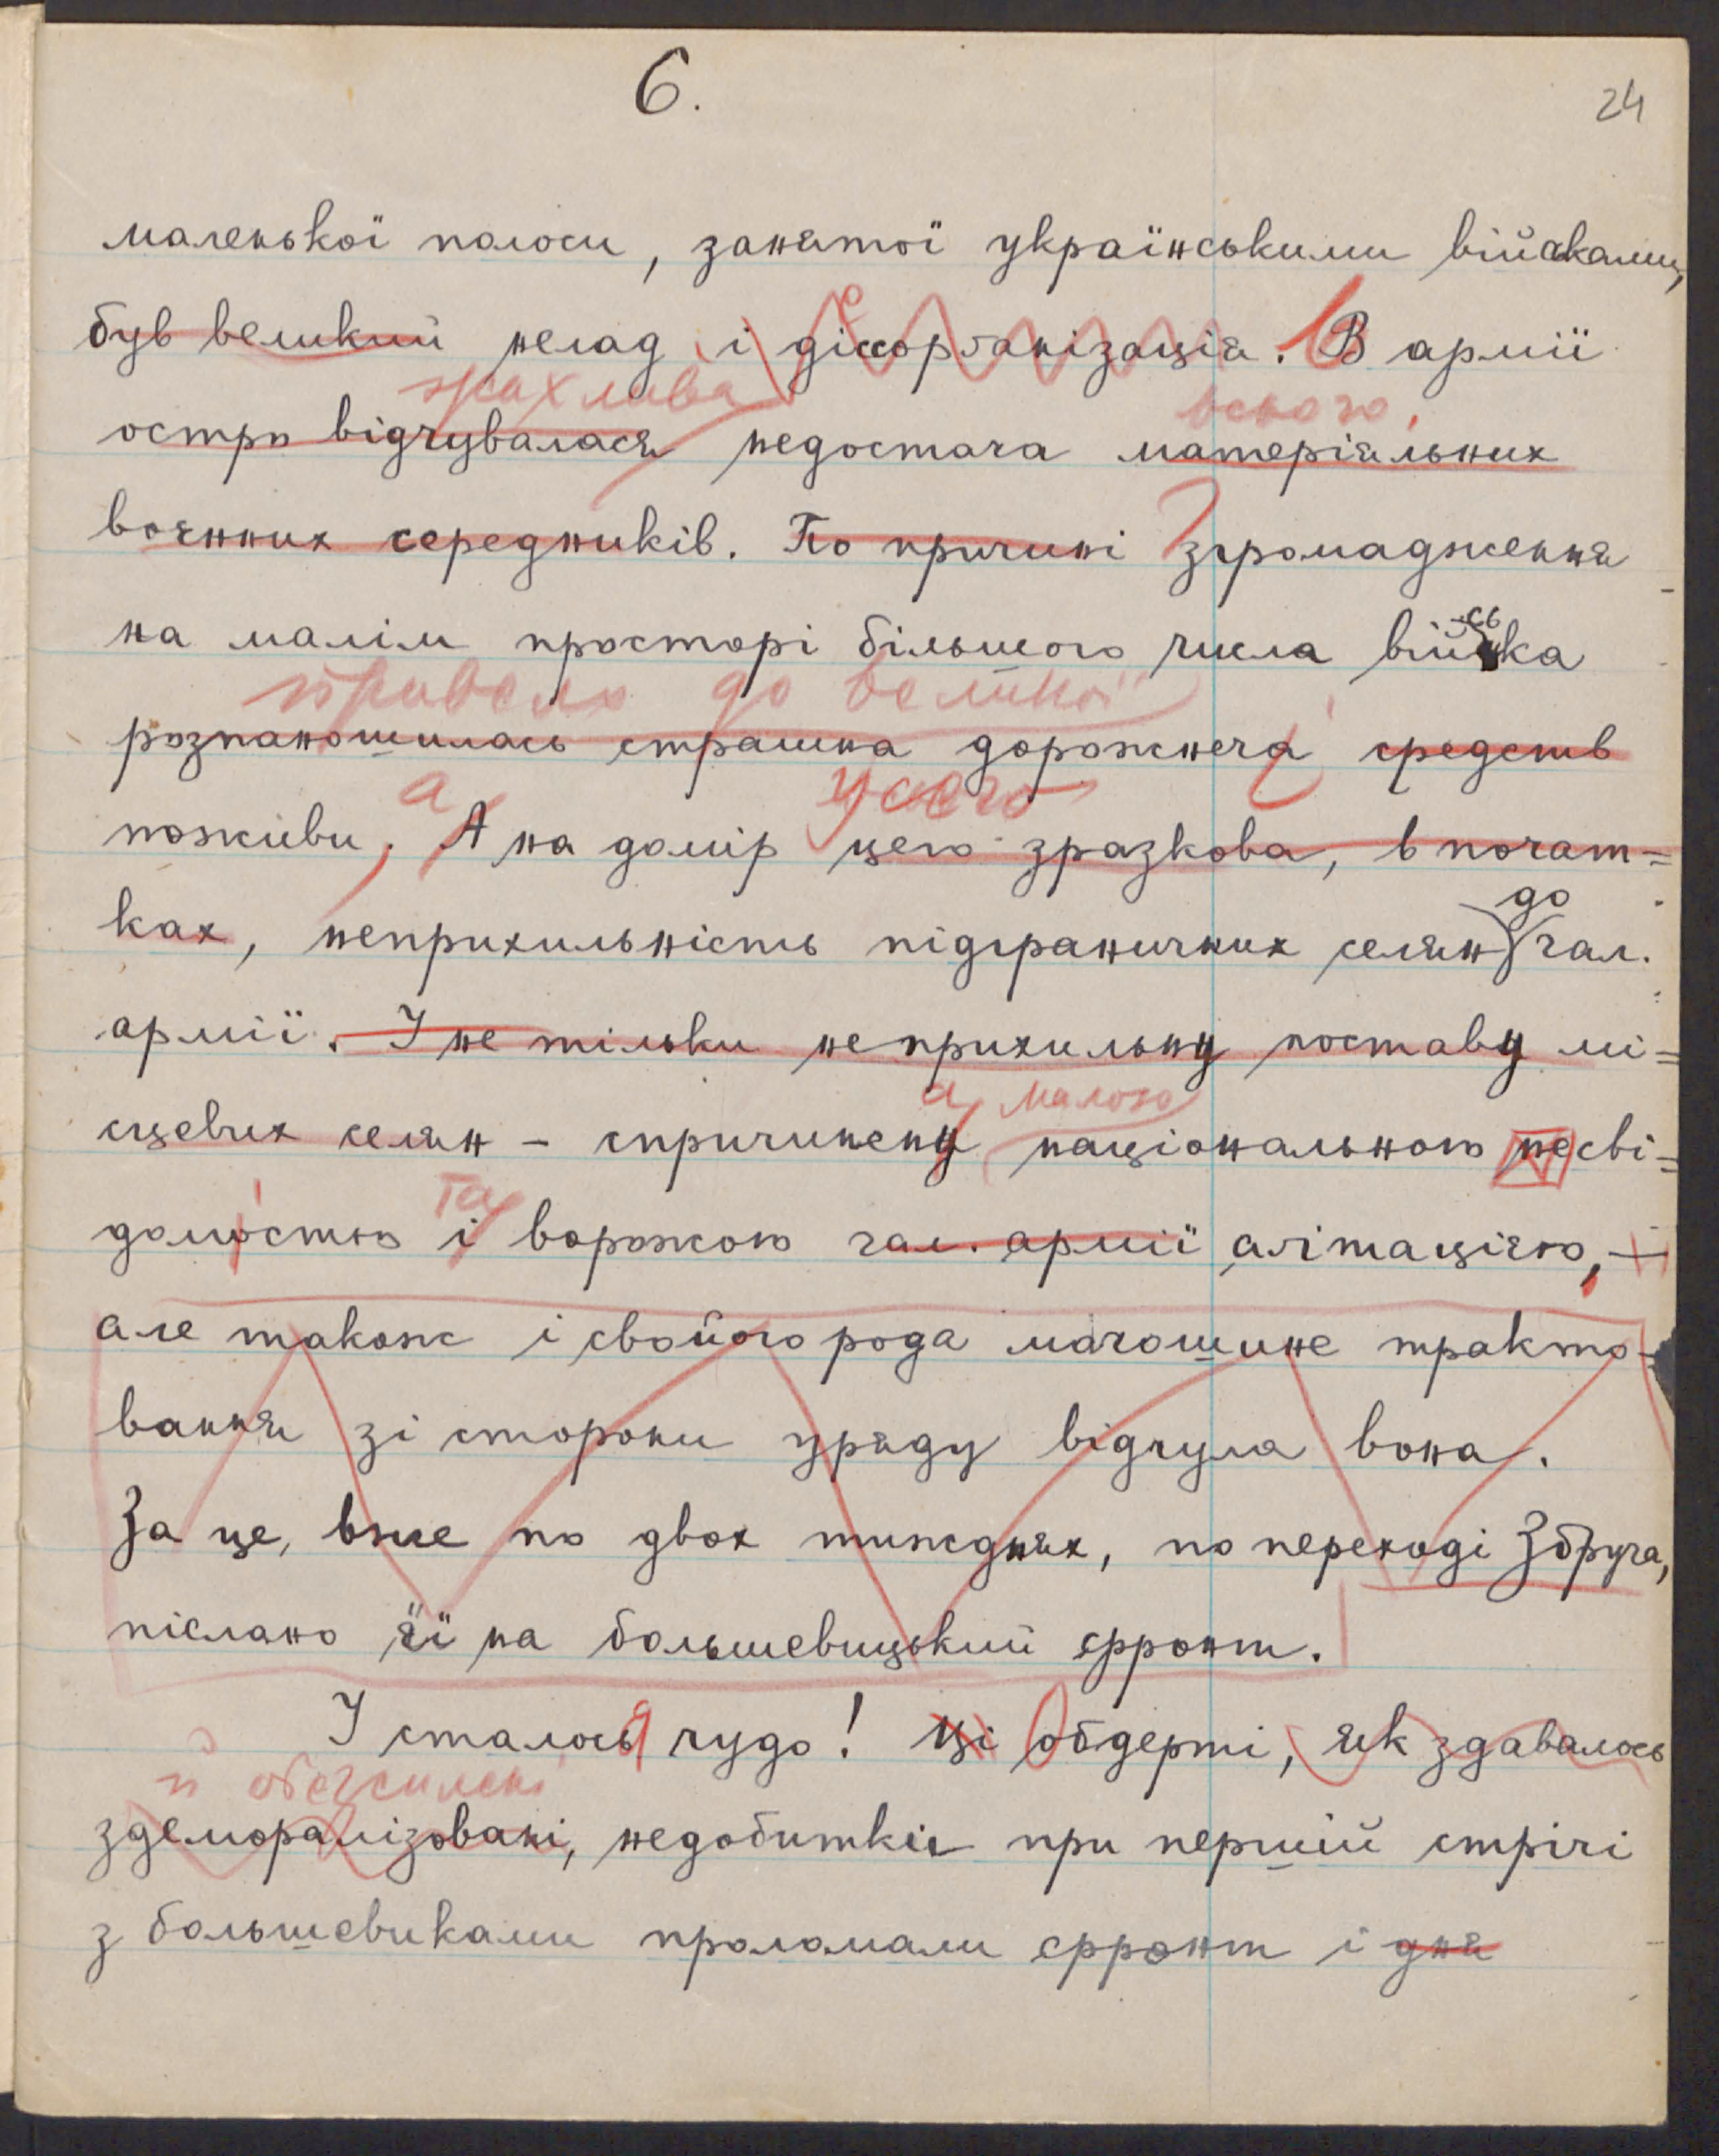 6.
24
маленької полоси, занятої українськими військами,
був великий нелад і діссорганізація. В армії
жахлива всього,
остро відчувалася недостача матеріяльних
воєнних середників. По причині згромадження
на малім просторі більшого числа війська
привело до великої
розпаношилась страшна дорожнеча средств
а усего
поживи. А на домір цего зразкова, в почат=
ках, неприхильність підграничних селян до гал.
армії. І не тільки неприхильну поставу мі=
а малою
сцевих селян – спричинену національною несві=
та
домостю і ворожою гал. армії агітацією, –
але також і свойого рода мачошине тракто-
вання зі сторони уряду відчула вона.
За це, вже по двох тижднях, по переході Збруча,
післано її на большевицький фронт.
І сталось чудо! Ці обдерті, як здавалось
й обезсилені
здеморалізовані, недобитки при першій стрічі
з большевиками проломали фронт і дня